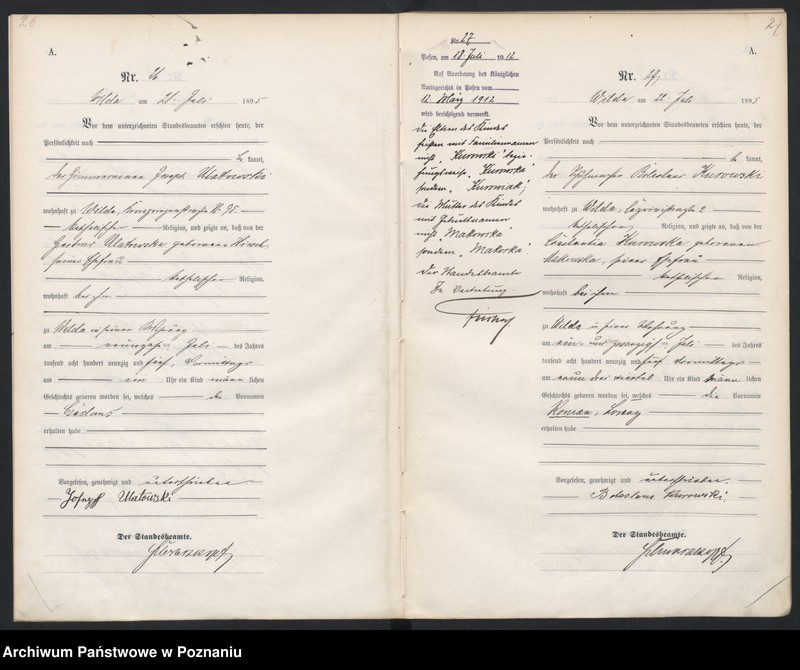 26
A.
Nr. 26
Wilda am 21. Juli 1895
Vor dem unterzeichneten Standesbeamten erschien heute, der
Persönlichkeit nach
be kannt,
der Zimmermann Joseph Ulatowski
wohnhaft zu Wilda, Kronprinzenstraße Nr. 95.
katholischer Religion, und zeigte an, daß von der
Ulatowska geborenen
seiner Ehefrau
katholischer Religion,
wohnhaft bei ihm
zu Wilda in seiner Wohnung
am neunzehnten Juli des Jahres
tausend acht hundert neunzig und fünf, Vormittags
um ein Uhr ein Kind männ lichen
Geschlechts geboren worden sei, welches den Vornamen
erhalten habe
Vorgelesen, genehmigt und unterschrieben
Josepff Ulatowski
Der Standesbeamte.
27
Nr. 27
Posen, am 18. Juli 1912
Auf Anordnung des Königlichen
Amtsgerichts in Posen vom
12. März 1912
wird berichtigend vermerkt.
die Eltern des Kindes
heißen mit Familiennamen
nicht „Kurowski" bezie-
hungsweise „Kurowska"
sondern „Kurowiak";
die Mutter des Kindes
mit Geburtsnamen
nicht „Makowska"
sondern „Makorka"
Der Standesbeamte
In Vertretung
A.
Nr. 27
Wilda am 22. Juli 1895
Vor dem unterzeichneten Standesbeamten erschien heute, der
Persönlichkeit nach
be kannt,
der Boleslaus Kurowski
wohnhaft zu Wilda, 2
katholischer Religion, und zeigte an, daß von der
Kurowska geborenen
Makowska, seiner Ehefrau
katholischer Religion,
wohnhaft bei ihm
zu Wilda in seiner Wohnung
am ein und zwanzigsten Juli des Jahres
tausend acht hundert neunzig und fünf Vormittags
um neun drei viertel Uhr ein Kind männ lichen
Geschlechts geboren worden sei, welches die Vornamen
Roman,
erhalten habe
Vorgelesen, genehmigt und unterschrieben.
Boleslaus Kurowski.
Der Standesbeamte.
Archiwum Państwowe w Poznaniu